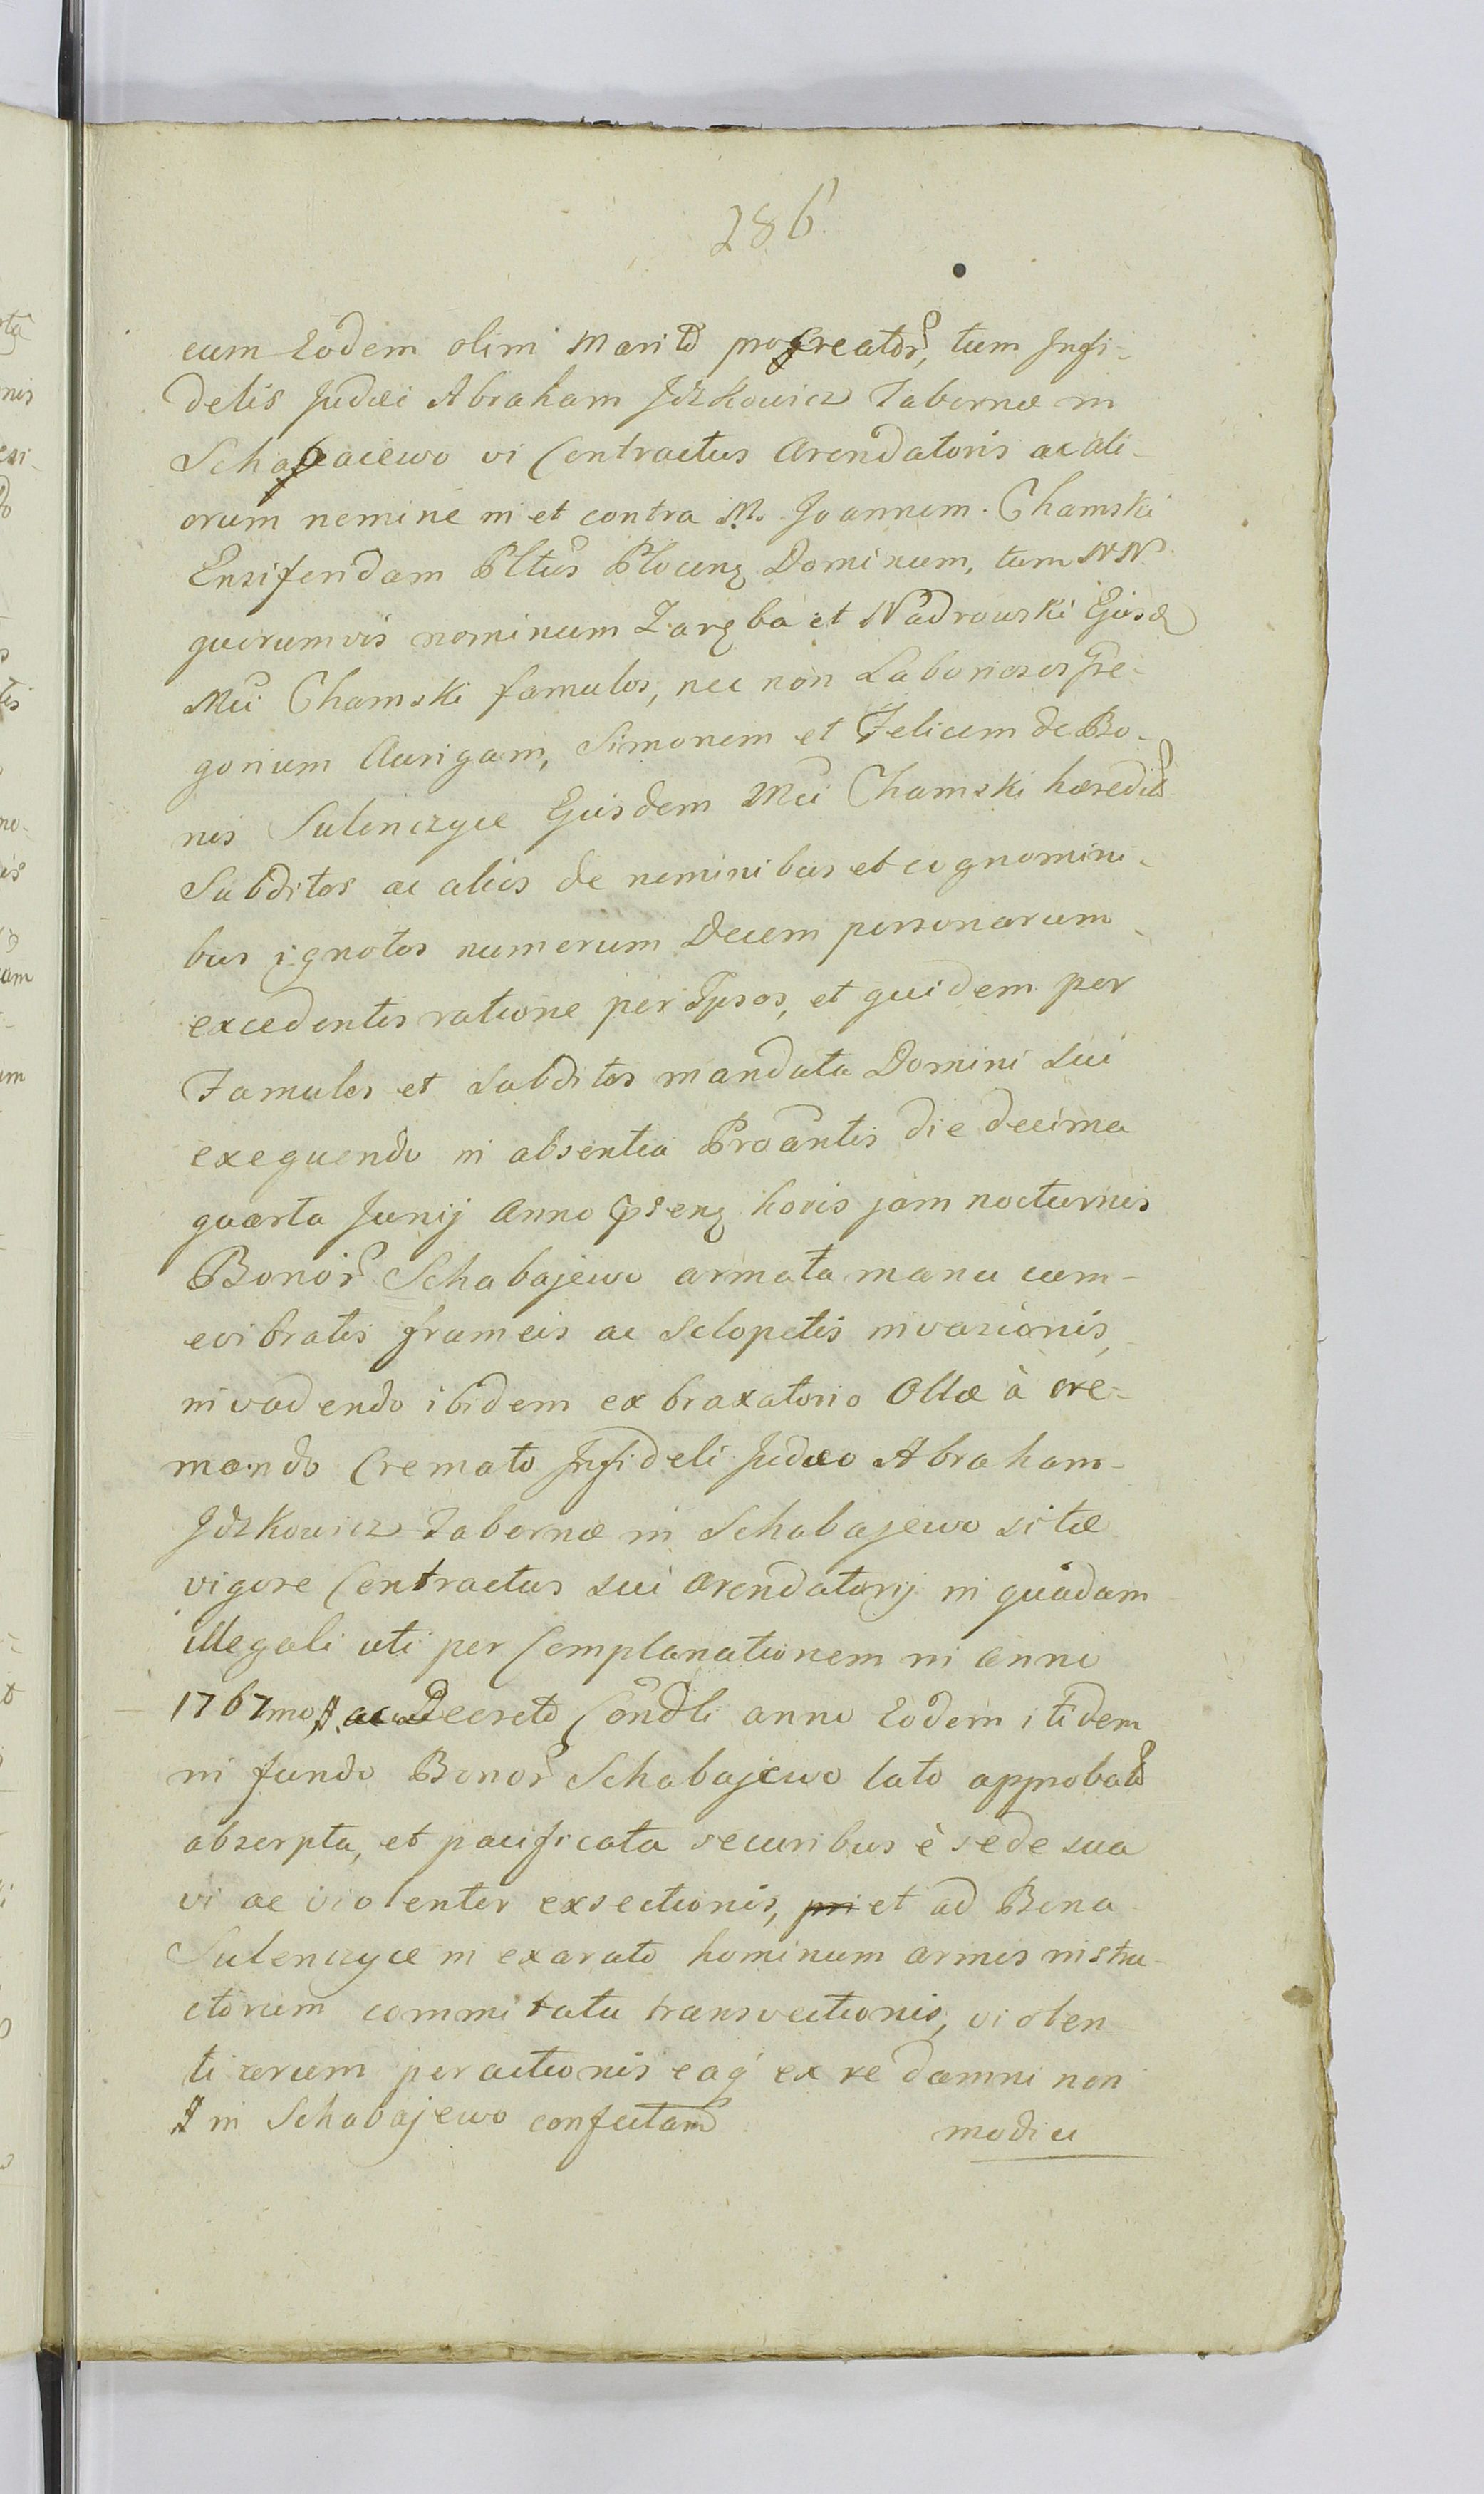 286
cum Eodem olim Marito procreator, tum Infi-
delis Judæi Abraham Jckowicz Tabernæ in
Schabaiewo vi Contractus Arendatoris ac ali-
orum nemine in et contra M. Joannem Chamski
Ensiferidam Pltus Plocenş Dominum, tum NN
quorumvis nominum Zaręba et Nadrowski Ejusd
Mci Chamski famulos, nec non Laboriosos Gre-
gorium Aurigam, Simonem et Felicem de Bo-
nis Sulenczyce Ejusdem Mci Chamski hæredit
Subditos ac aliis de nominibus et cognomini-
bus ignotos numerum Decem personarum
excedentes ratione per Ipsos, et quidem per
Famulos et Subditos mandata Domini Sui
exequendo in absentia Proantis die decima
quarta Junij Anno præsenş horis jam nocturnis
Bonor Schabajewo armata manu cum
evibratis frameis ac Sclopetis invasionis,
invadendo ibidem ex braxatorio Ollæ à cre-
mando Cremato Infideli Judæo Abraham
Jckowicz Tabernæ in Schabajewo sitæ
vigore Contractus sui Arendatorij in quadam
illegali uti per Complanationem in anno
1767mo # ac Decreto Condli anno Eodem itidem
in fundo Bonor Schabajewo lato approbat
absorpta, et pacificata securibus è sede sua
vi ac violenter exsectionis, pri et ad Bona
Sulenczyce in exarato hominum armis instru-
ctorum commitatu transvectionis, violen
tiarum peractionis eaq ex re damni non
# in Schabajewo confectam
modici